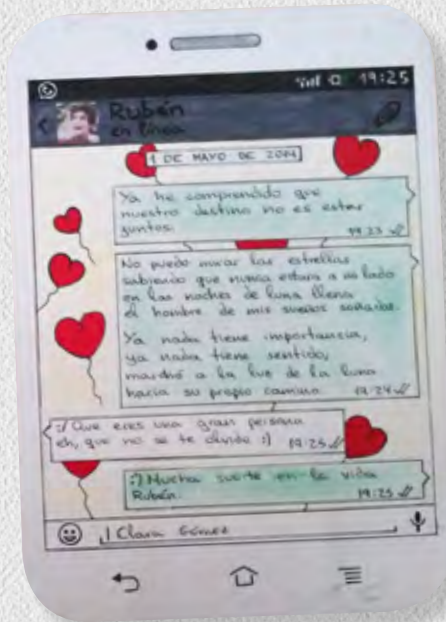 19:25
Rubén
en línea
1 DE MAYO DE 2014
Ya he comprendido que
nuestro destino no es estar
juntos.
19:23
No puedo mirar las estrellas
sabiendo que nunca estará a mi lado
en las noches de luna llena
el hombre de mis sueños soñados.
Ya nada tiene importancia,
ya nada tiene sentido,
marchó a la luz de la luna
hacia su propio camino. 19:24
:/ Que eres una gran persona
eh, que no se te olvide :) 19:25
:) Mucha suerte en la vida
Rubén. 19:25
Clara Gómez